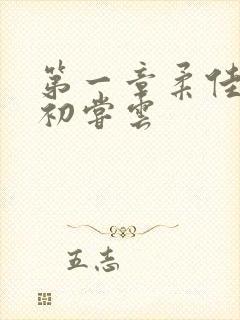 第一章柔佳
初尝雲
五志